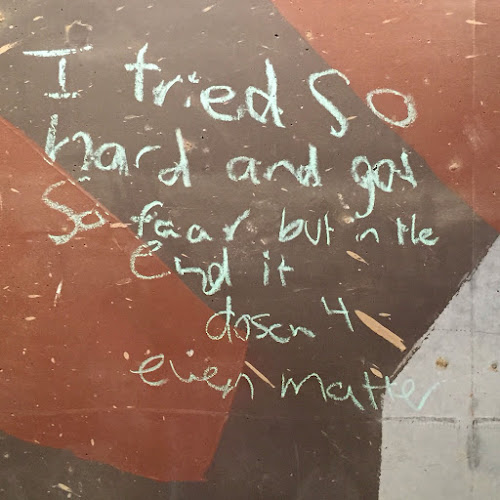 I tried So
hard and got
So faar but in the
End it
dosen4
even matter